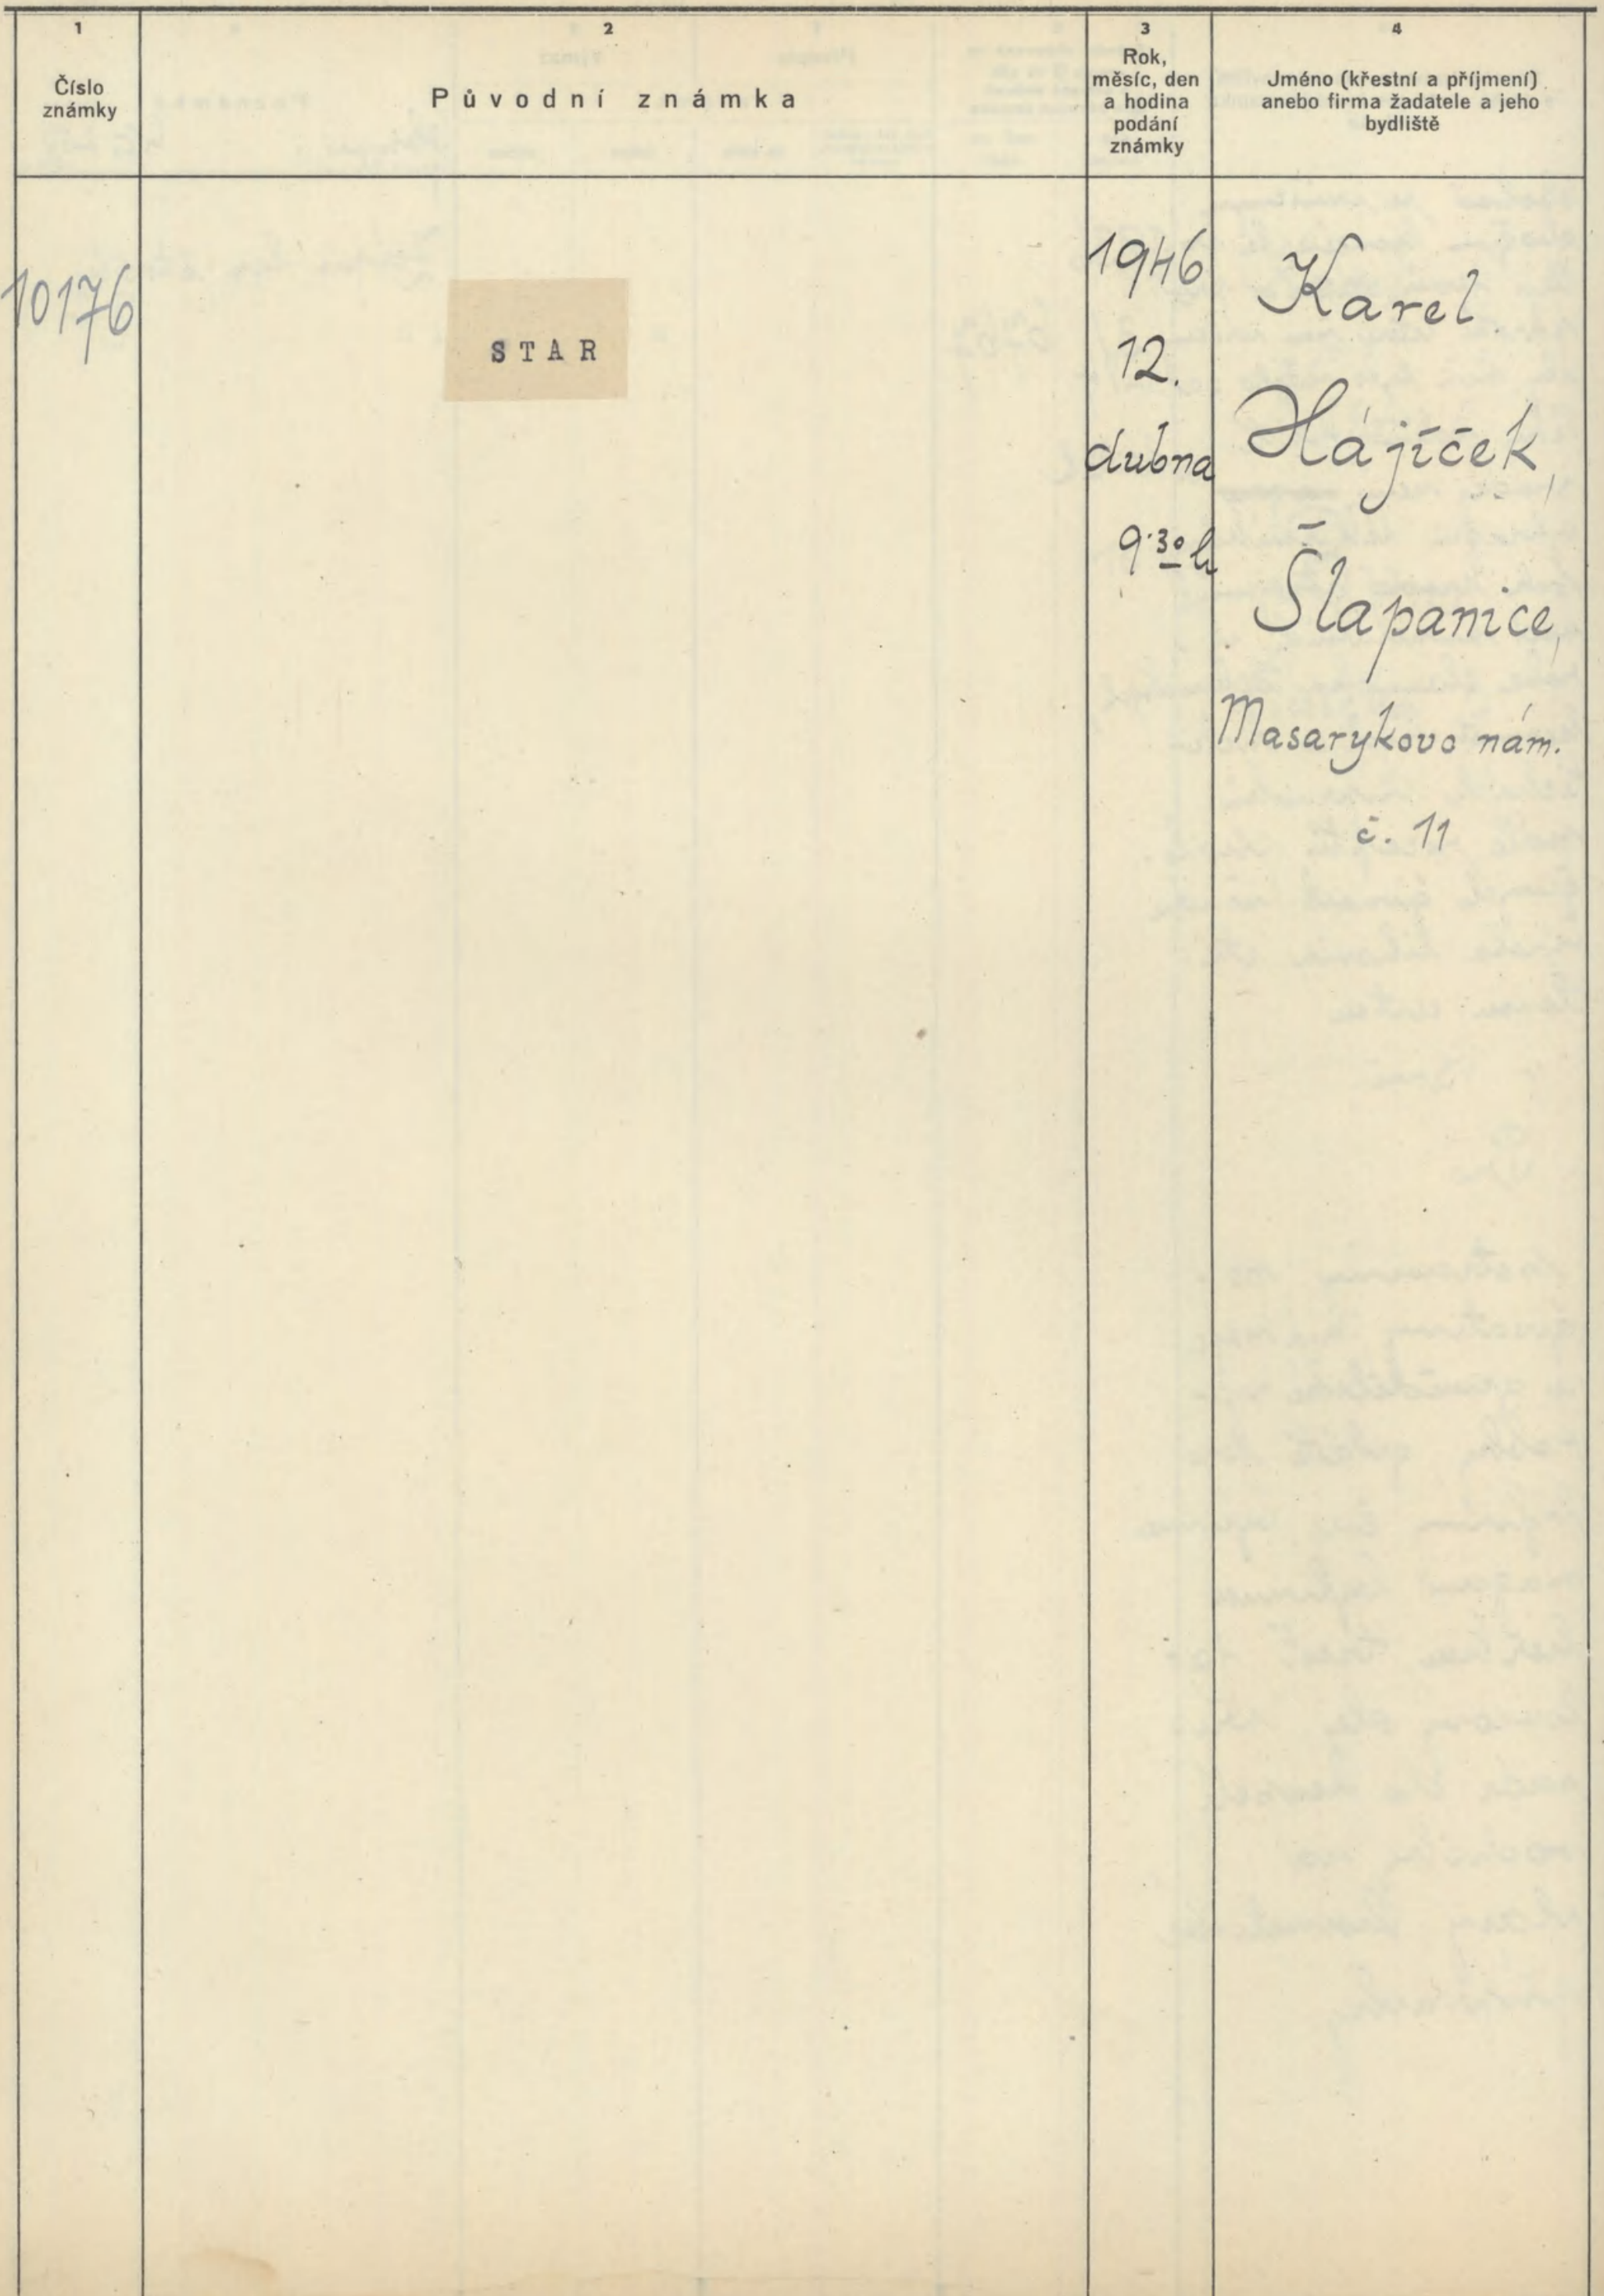 1
Číslo
známky
2
Původní známka
3
Rok,
měsíc, den
a hodina
podání
známky
4
Jméno (křestní a příjmení)
anebo firma žadatele a jeho
bydliště
10176
STAR
1946
12.
dubna
9·30 h
Karel
Hájíček,
Šlapanice,
Masarykovo nám.
č. 11